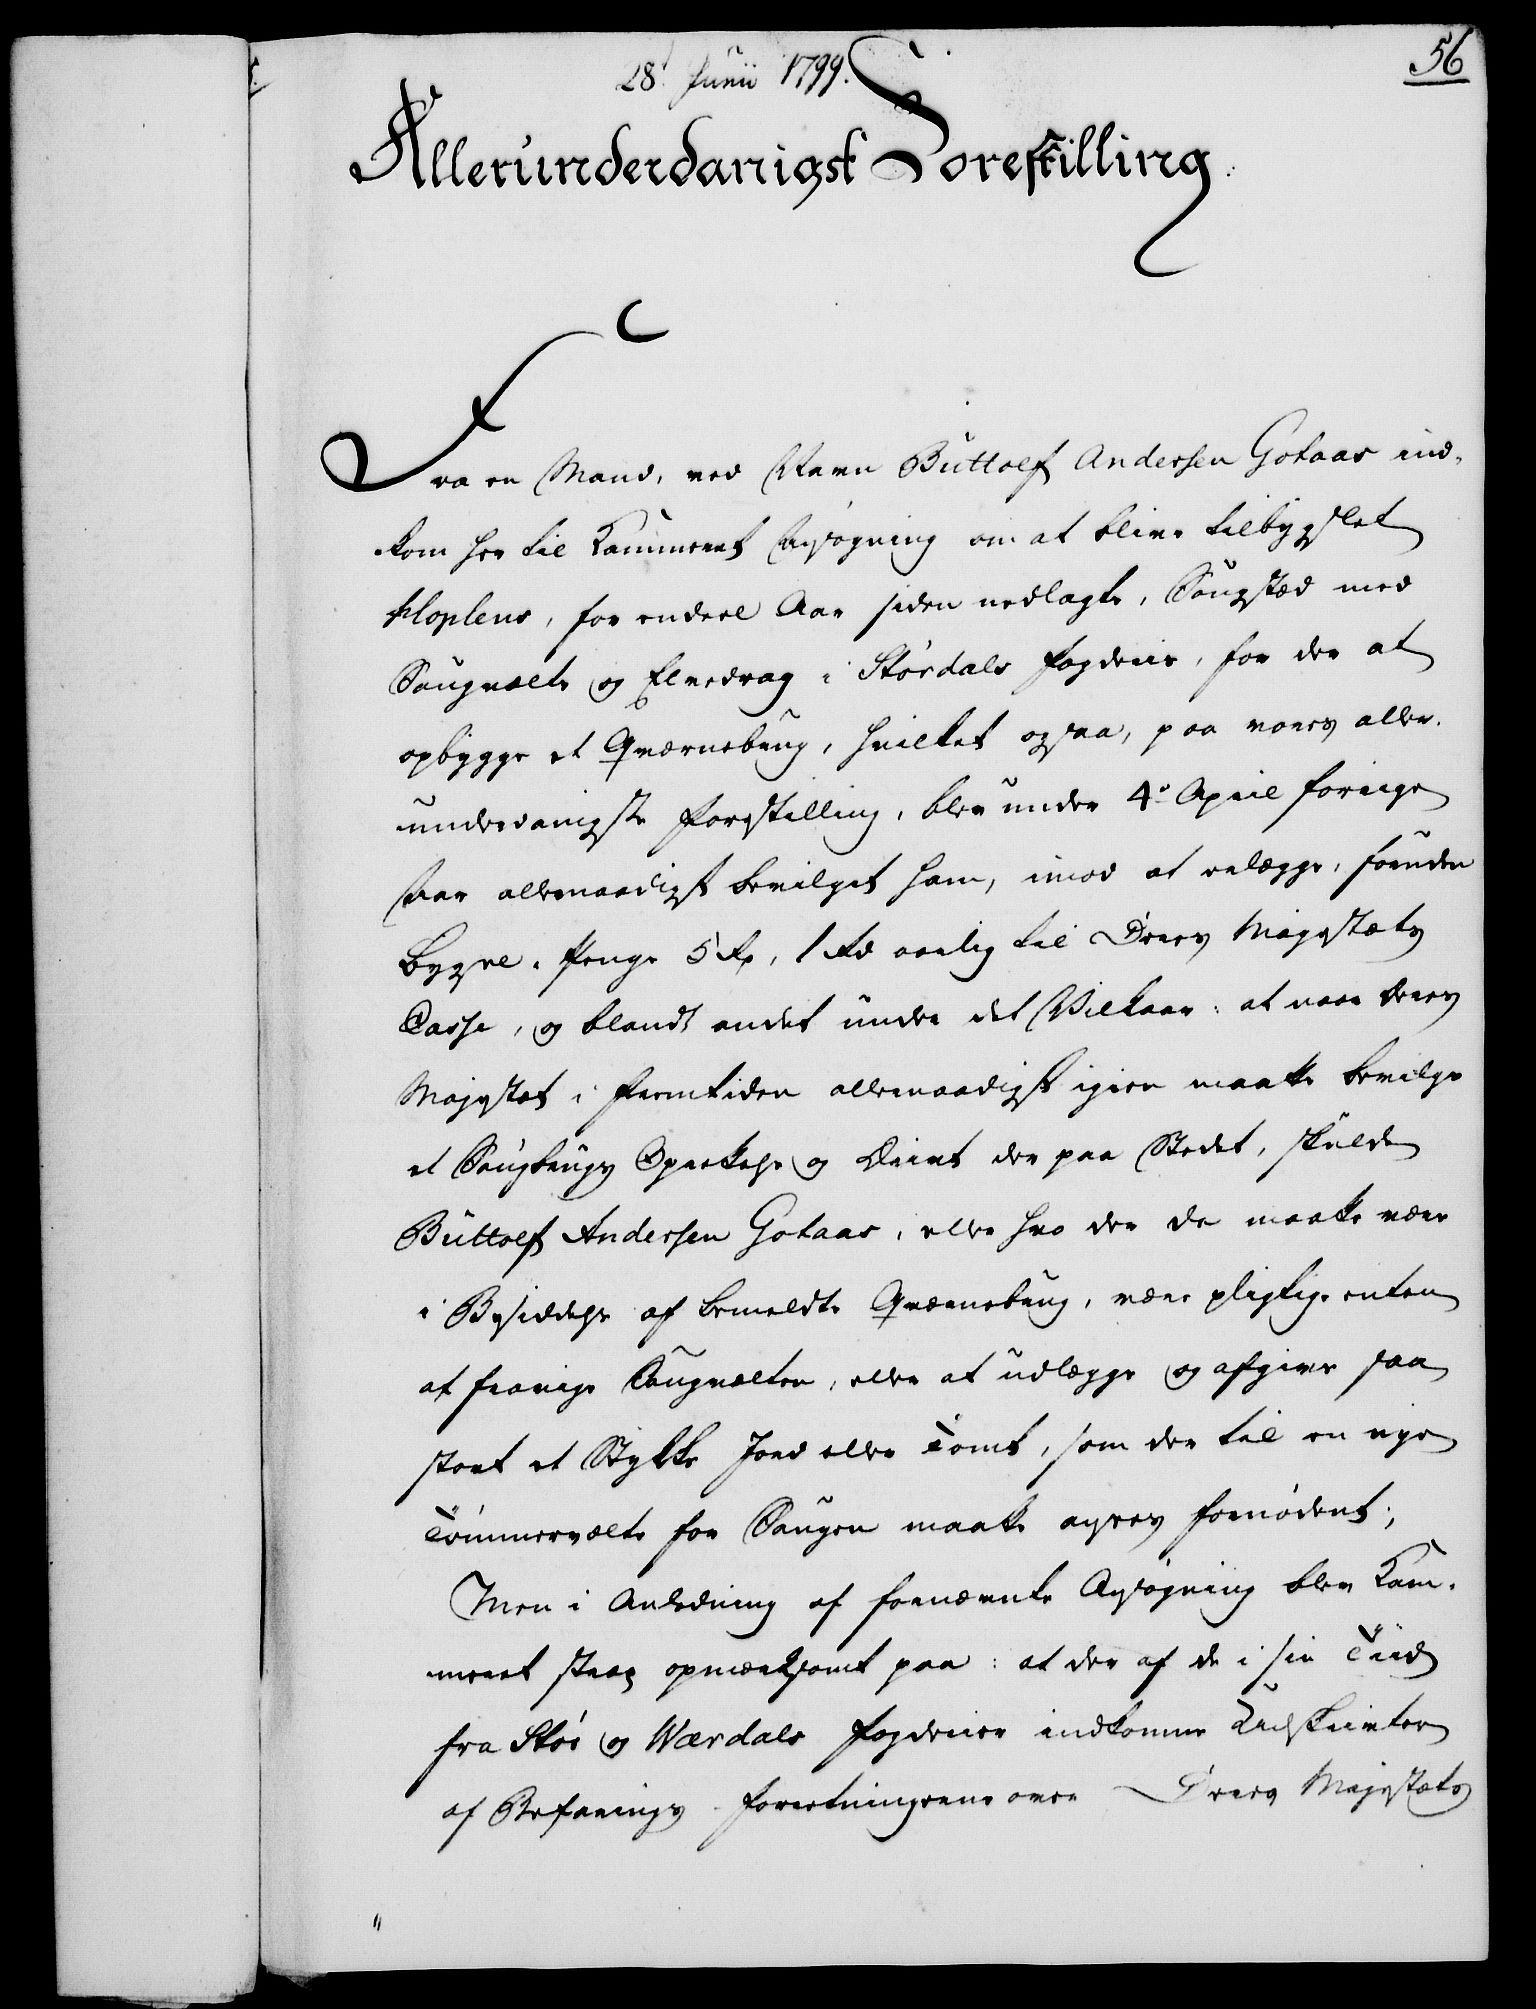 28. Junii 1799.
56
Allerunderdanigst Forestilling.
Fra en Mand, ved Navn Buttolf Andersen Gotaas ind-
kom her til Kammeret Ansøgning om at blive tilbygslet
Hoplens, for endeel Aar siden nedlagte, Saugstæd med
Saugvælte og Elvedrag i Størdals Fogderie, for der at
opbygge et Qværnebrug, hvilket ogsaa, paa vores aller-
underdanigste Forestilling, blev under 4de April forrige
Aar allernaadigst bevilget ham, imod at erlægge, foruden
Bygsel-Penge 5 Rd, 1 Rd aarlig til Deres Majestæts
Casse, og blandt andet under det Vilkaar: at naar Deres
Majestæt i Fremtiden allernaadigst igien maatte bevilge
et Saugbrugs Oprettelse og Drivt der paa Stedet, skulde
Buttolf Andersen Gotaas, eller hvo der da maatte være
i Besiddelse af bemeldte Qværnebrug, være pligtige enten
at fravige Saugvælten, eller at udlægge og afgive saa
stort et Stykke Jord eller Tomt, som der til en nye
Tømmervælte for Saugen maatte agtes fornødent;
Men i Anledning af fornævnte Ansøgning blev Kam-
meret strax opmærksomt paa: at der af de i sin Tiid
fra Stør og Værdals Fogderier indkomne Udskrivter
af Befarings-Forretningerne over Deres Majestæts